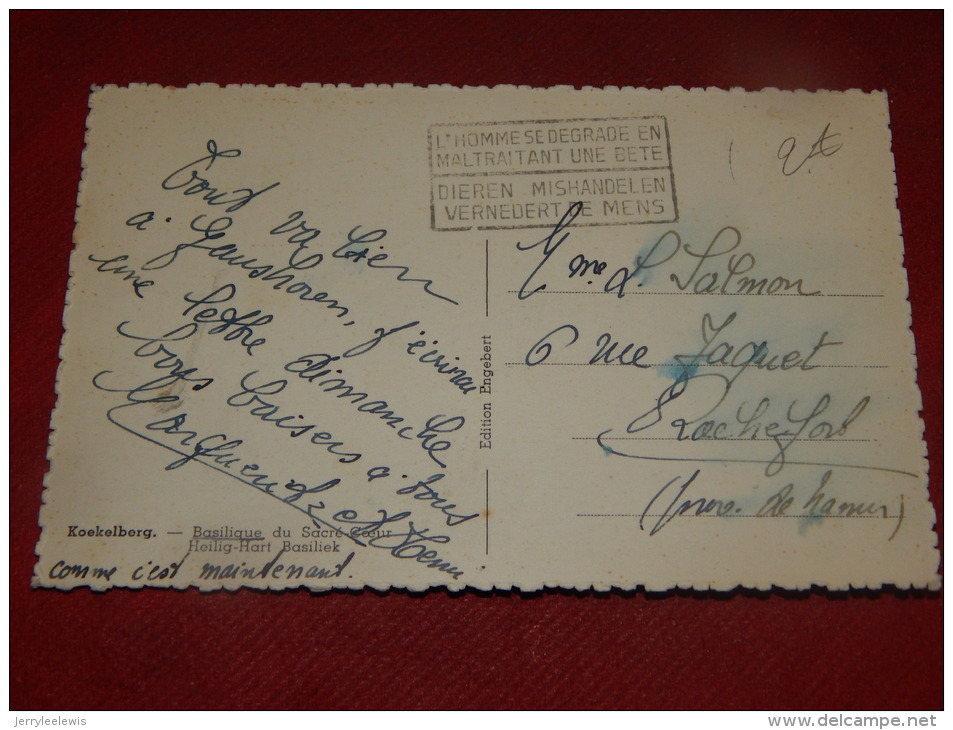 L'HOMME SE DEGRADE EN
MALTRAITANT UNE BETE
DIEREN MISHANDELEN
VERNEDERT DE MENS
Tout va bien
à Ganshoren, j'écrirai
une lettre dimanche
bons baisers à tous
Marguerite et Henri
Koekelberg. — Basilique du Sacré-Cœur
Heilig-Hart Basiliek
comme c'est maintenant.
Edition Engebert
Mme L. Salmon
6 rue Jaquet
Rochefort
(prov. de Namur)
jerryleelewis
www.delcampe.net